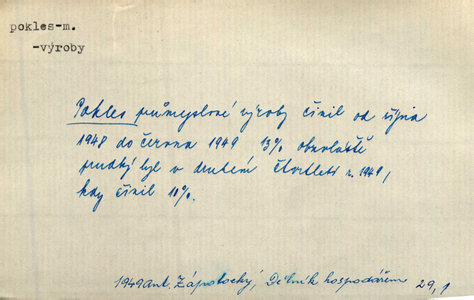 pokles-m.
-výroby
Pokles průmyslové výroby činil od října
1948 do června 1949 13% obzvláště
prudký byl v druhém čtvrtletí r. 1949,
kdy činil 10%.
1949 Ant. Zápotocký, Dělník hospodářem 29,1